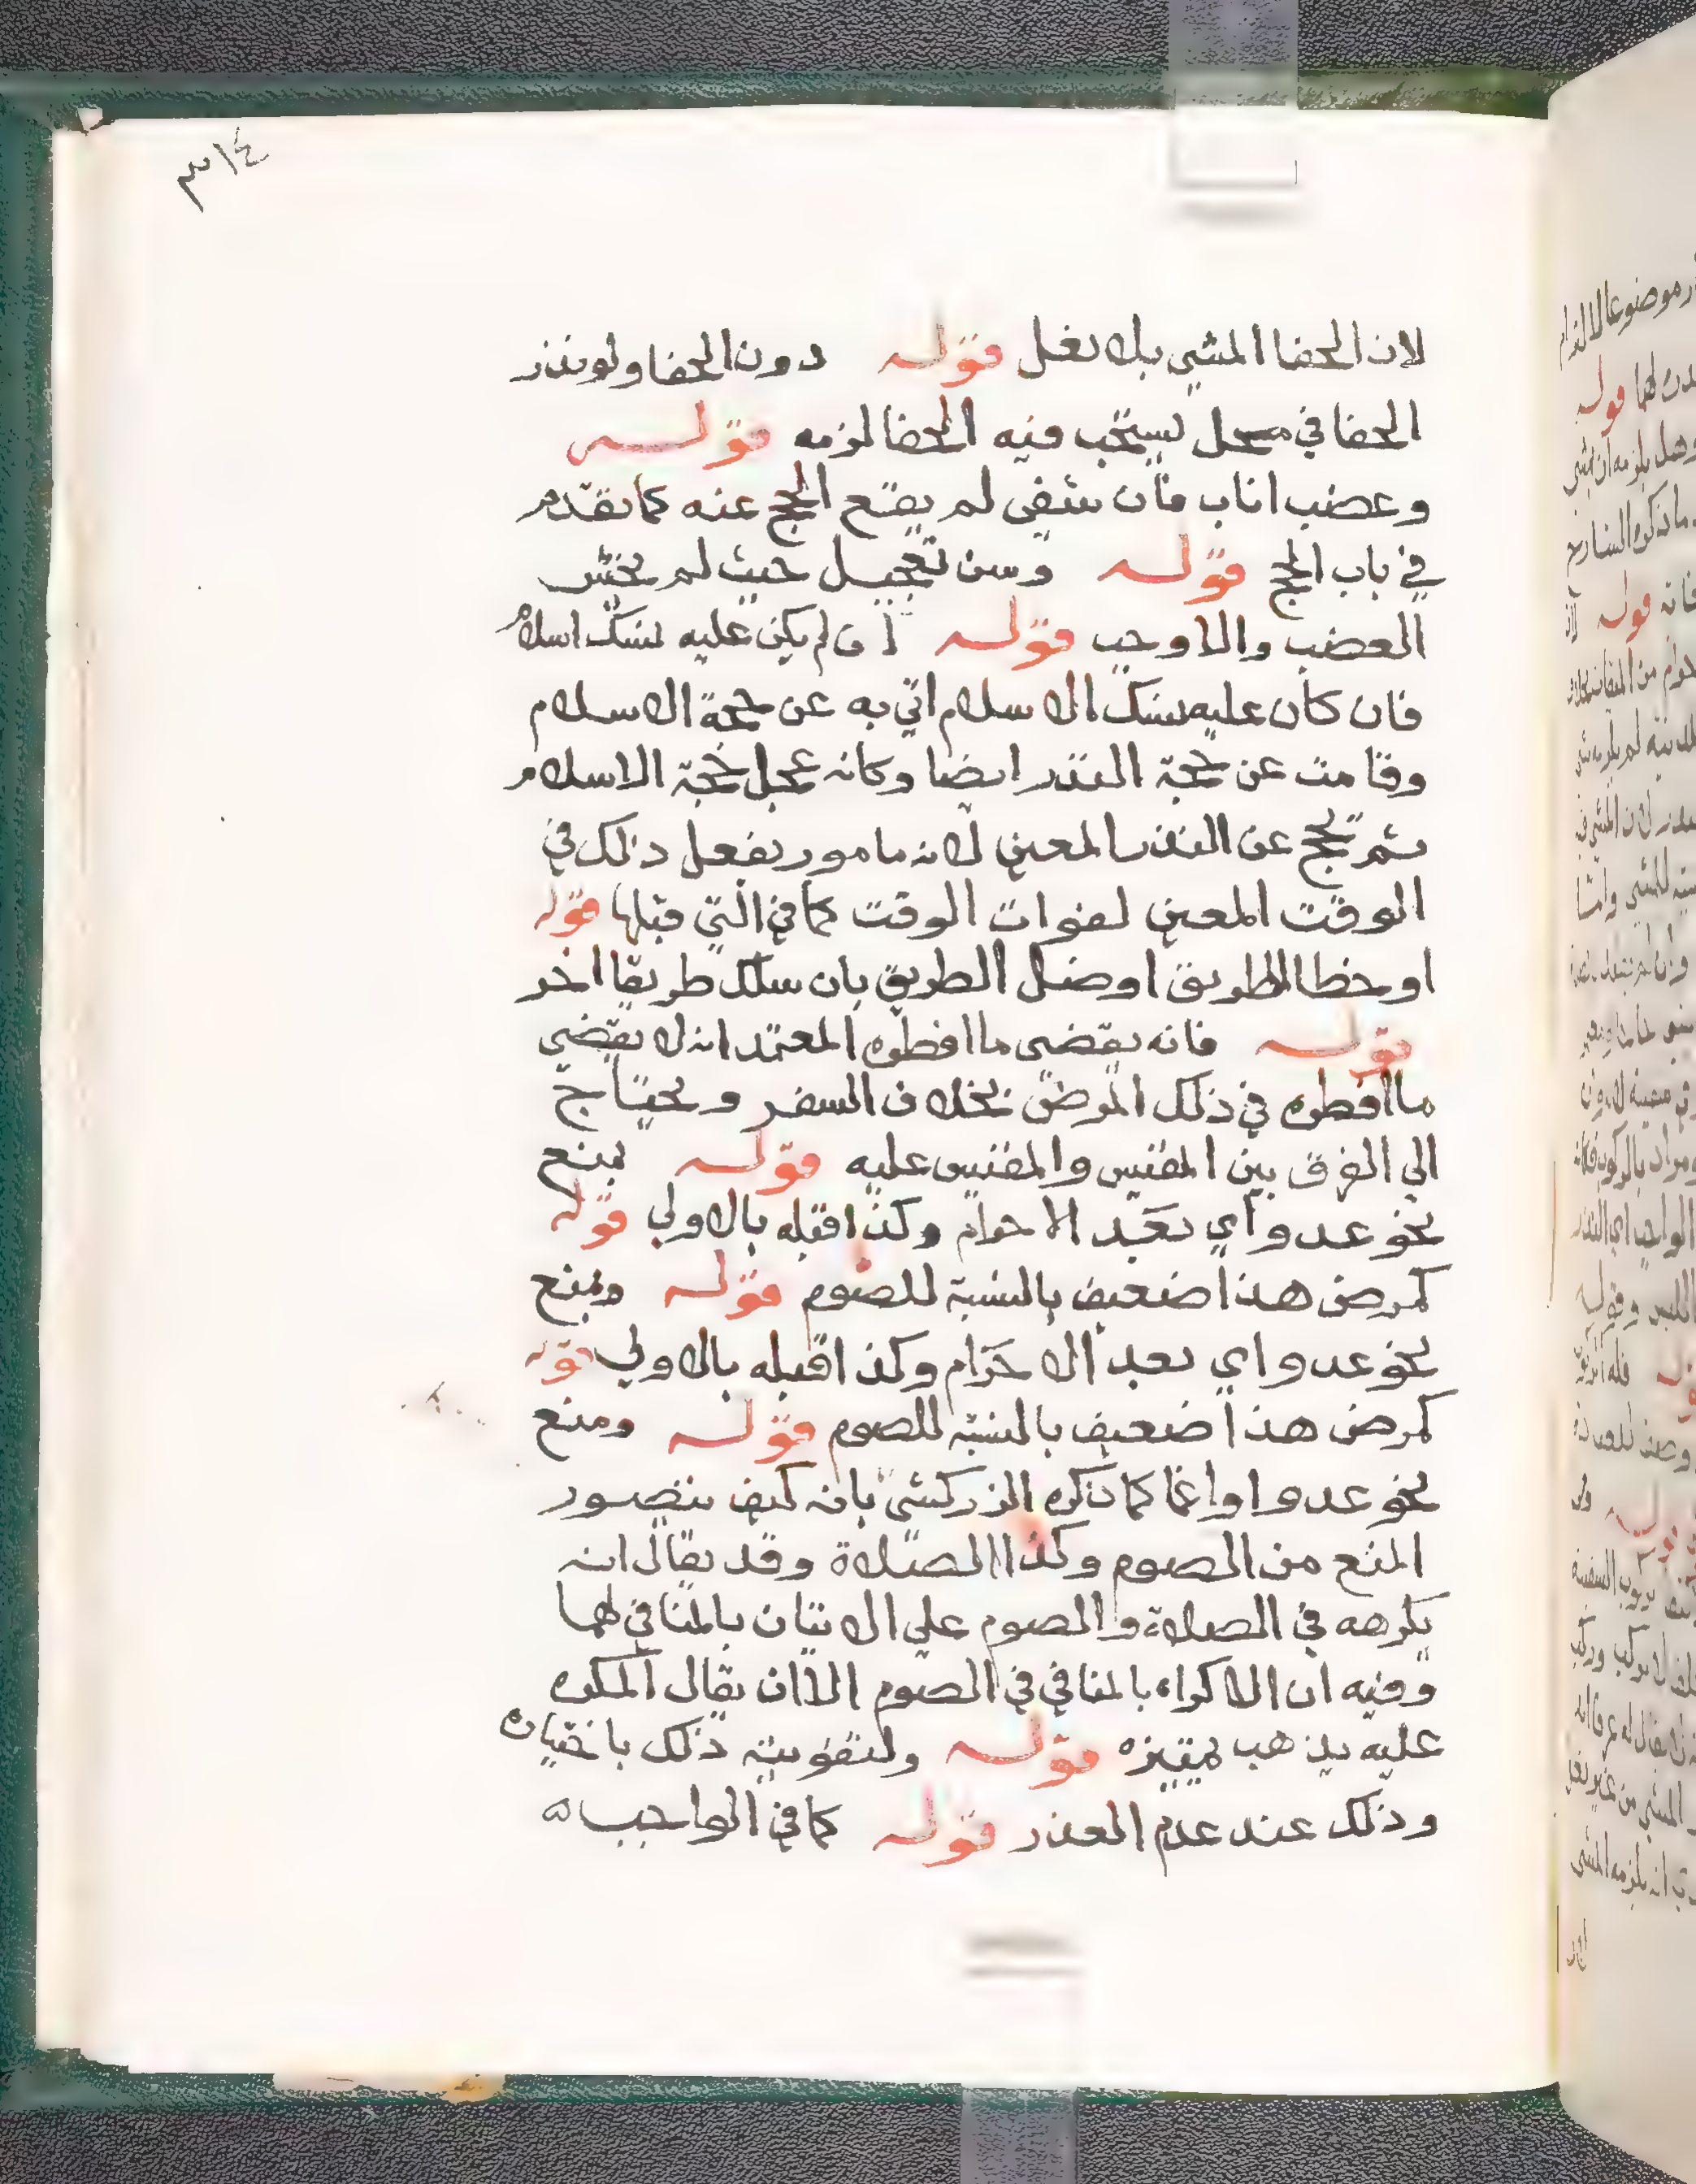 ٣١٤
لان الحفا المشي بلا نعل قوله دون الحفا ولو نذر
الحفا في محل يستحب فيه الحفا لزمه قوله
وعضب اناب فان شفي لم يقع الحج عنه كما تقدم
في باب الحج قوله وسن تعجيل حيث لم يخش
العضب والا وجب قوله ان لم يكن عليه نسك اسلام
فان كان عليه نسك الاسلام اتي به عن حجة الاسلام
وقامت عن حجة النذر ايضا وكانه عجل حجة الاسلام
ثم يحج عن النذر المعين لانه مامور بفعل ذلك في
الوقت المعين لفوات الوقت كما في التي قبلها قوله
او خطا الطريق او ضل الطريق بان سلك طريقا اخر
قوله فانه يقضي ما افطره المعتمد انه لا يقضي
ما افطره في ذلك المرض بخلاف السفر ويحتاج
الي الفرق بين المقيس والمقيس عليه قوله بمنع
نحو عدو أي بعد الاحرام وكذا قبله بالاولي قوله
كمرض هذا ضعيف بالنسبة للصوم قوله وبمنع
نحو عدو اي بعد الاحرام وكذا قبله بالاولي قوله
كمرض هذا ضعيف بالنسبة للصوم قوله ومنع
نحو عدو او اغما كما ذكره الزركشي بانه كيف يتصور
المنع من الصوم وكذا الصلاة وقد يقال انه
يكرهه في الصلاة والصوم علي الاتيان بالمنافي لهما
وفيه ان الاكراه بالمنافي في الصوم الا ان يقال المكره
عليه يذهب تمييزه قوله ولتفويته ذلك باختياره
وذلك عند عدم العذر قوله كما في الواجب ه